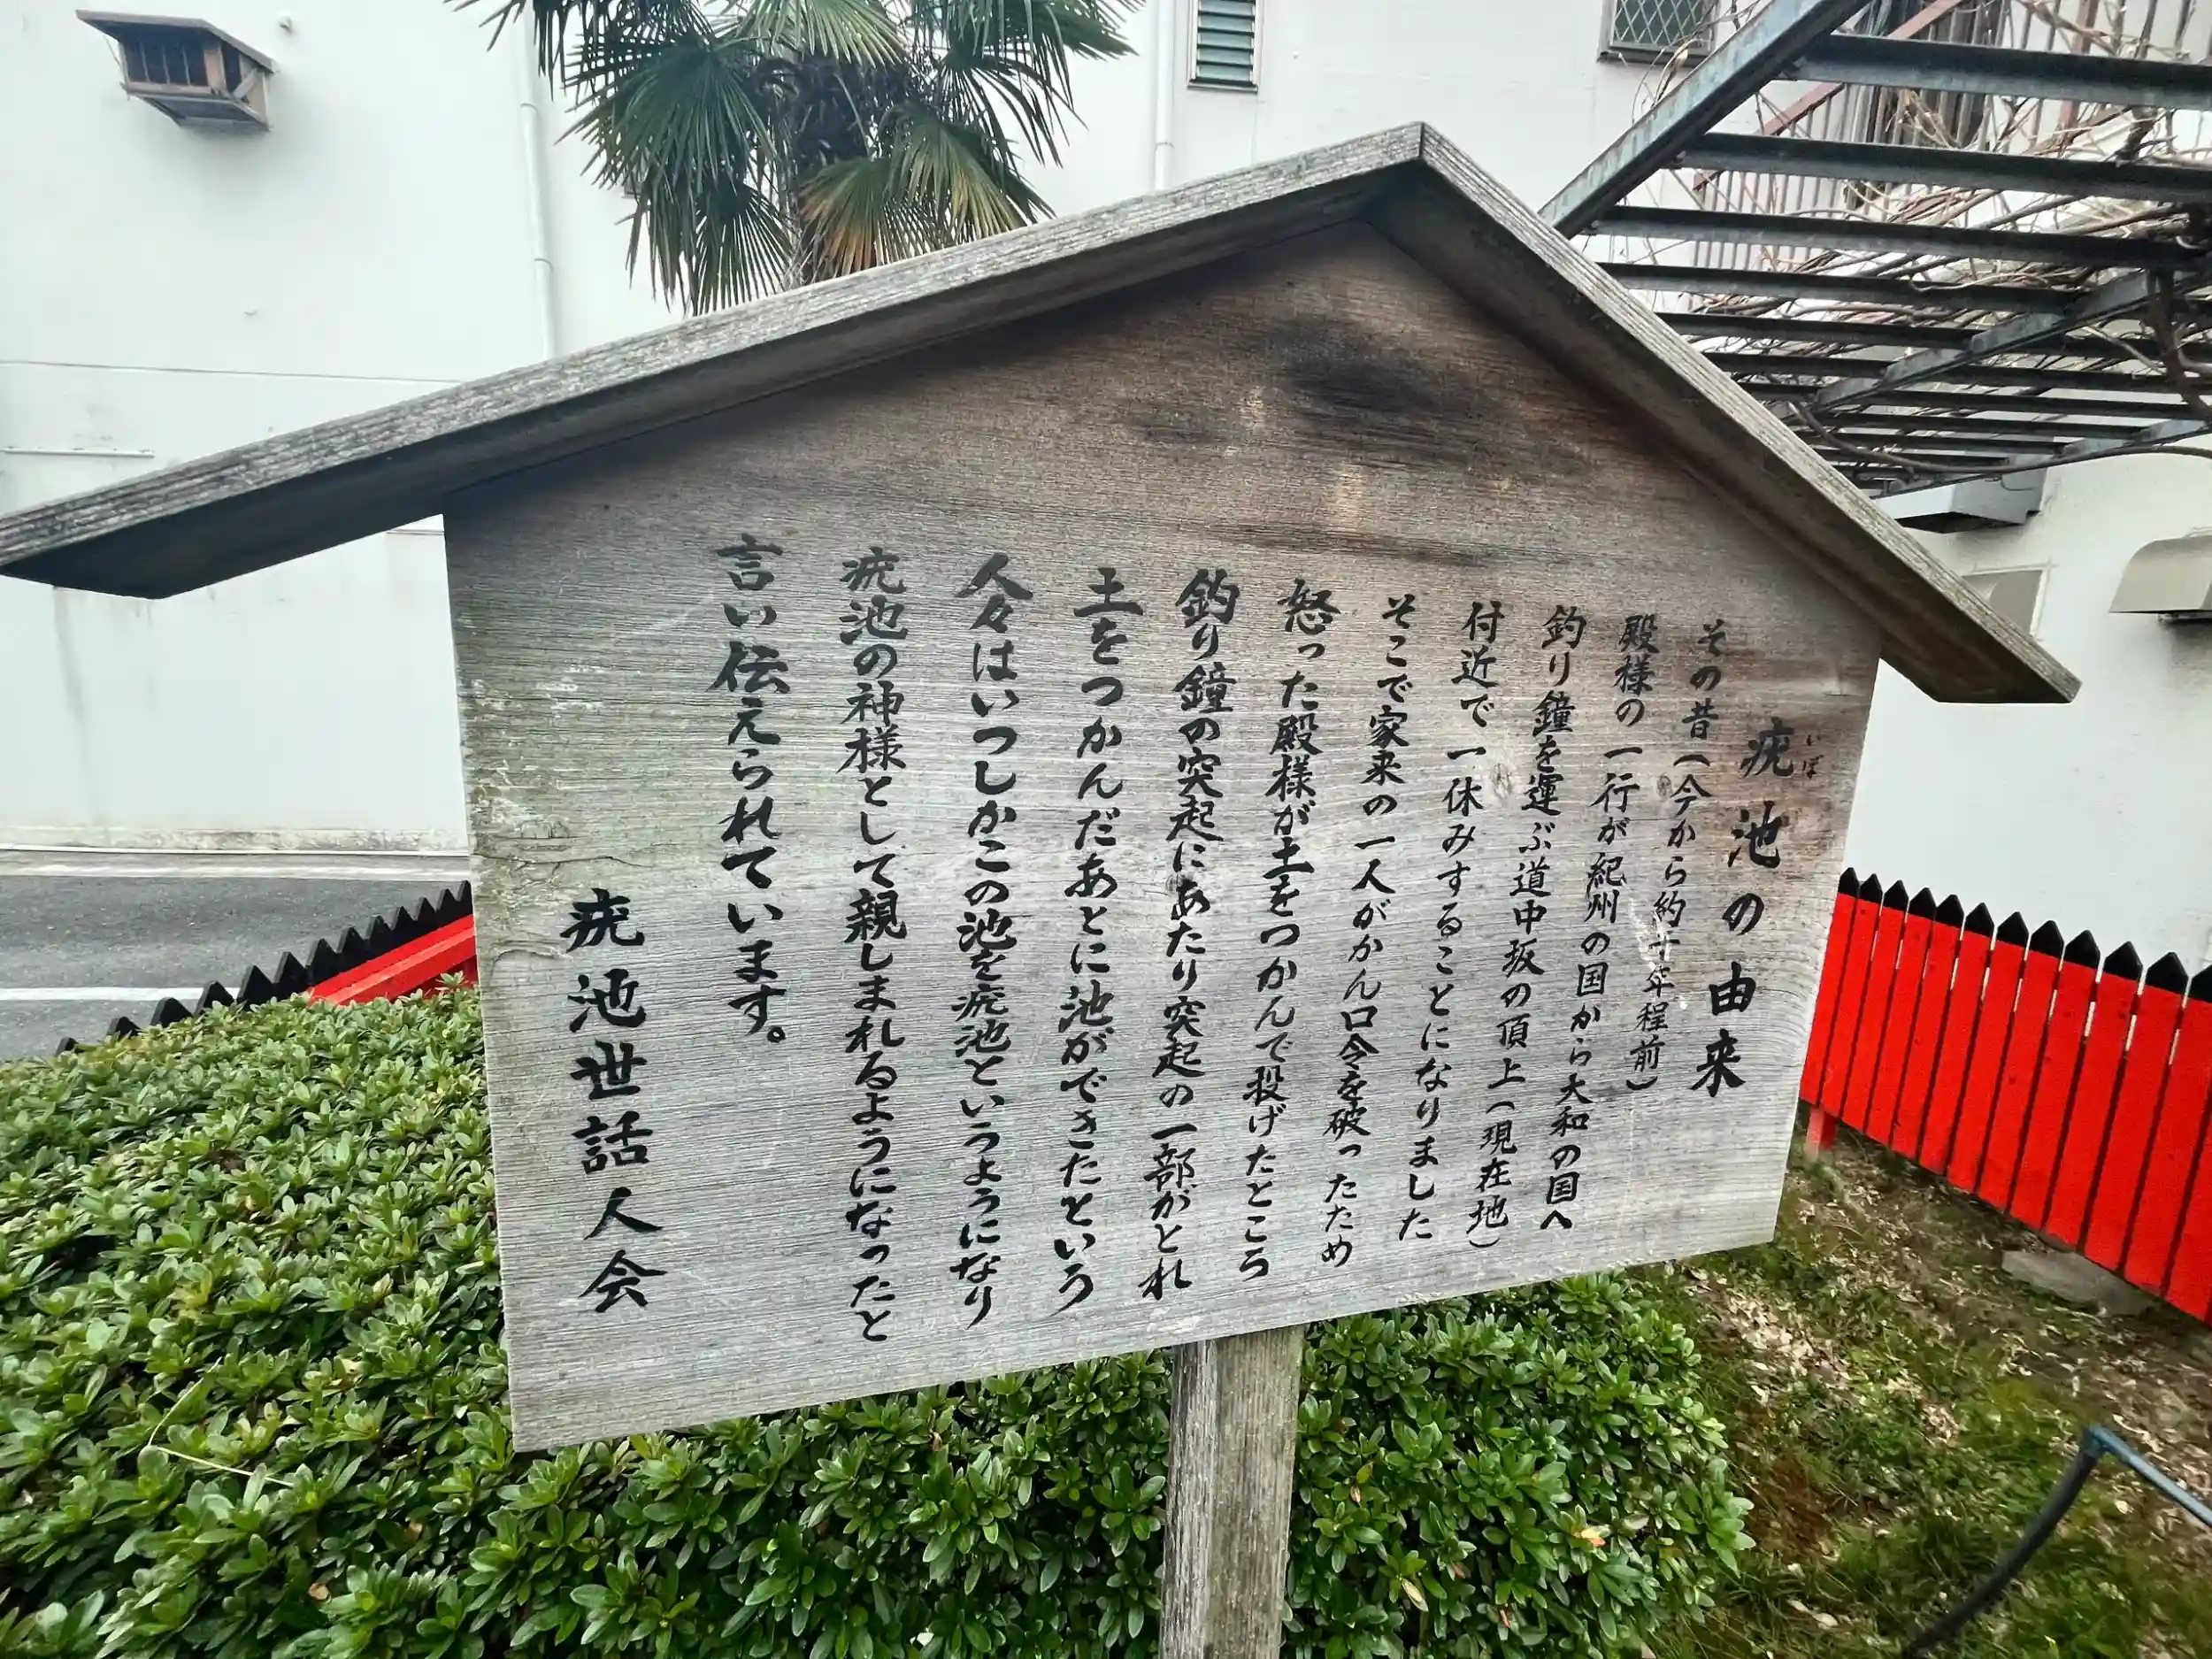 疣池の由来
いぼ
その昔（今から約十年程前）
殿様の一行が紀州の国から大和の国へ
釣り鐘を運ぶ道中坂の頂上（現在地）
付近で一休みすることになりました
そこで家来の一人がかん口令を破ったため
怒った殿様が土をつかんで投げたところ
釣り鐘の突起にあたり突起の一部がとれ
土をつかんだあとに池ができたという
人々はいつしかこの池を疣池というようになり
疣池の神様として親しまれるようになったと
言い伝えられています。
疣池世話人会